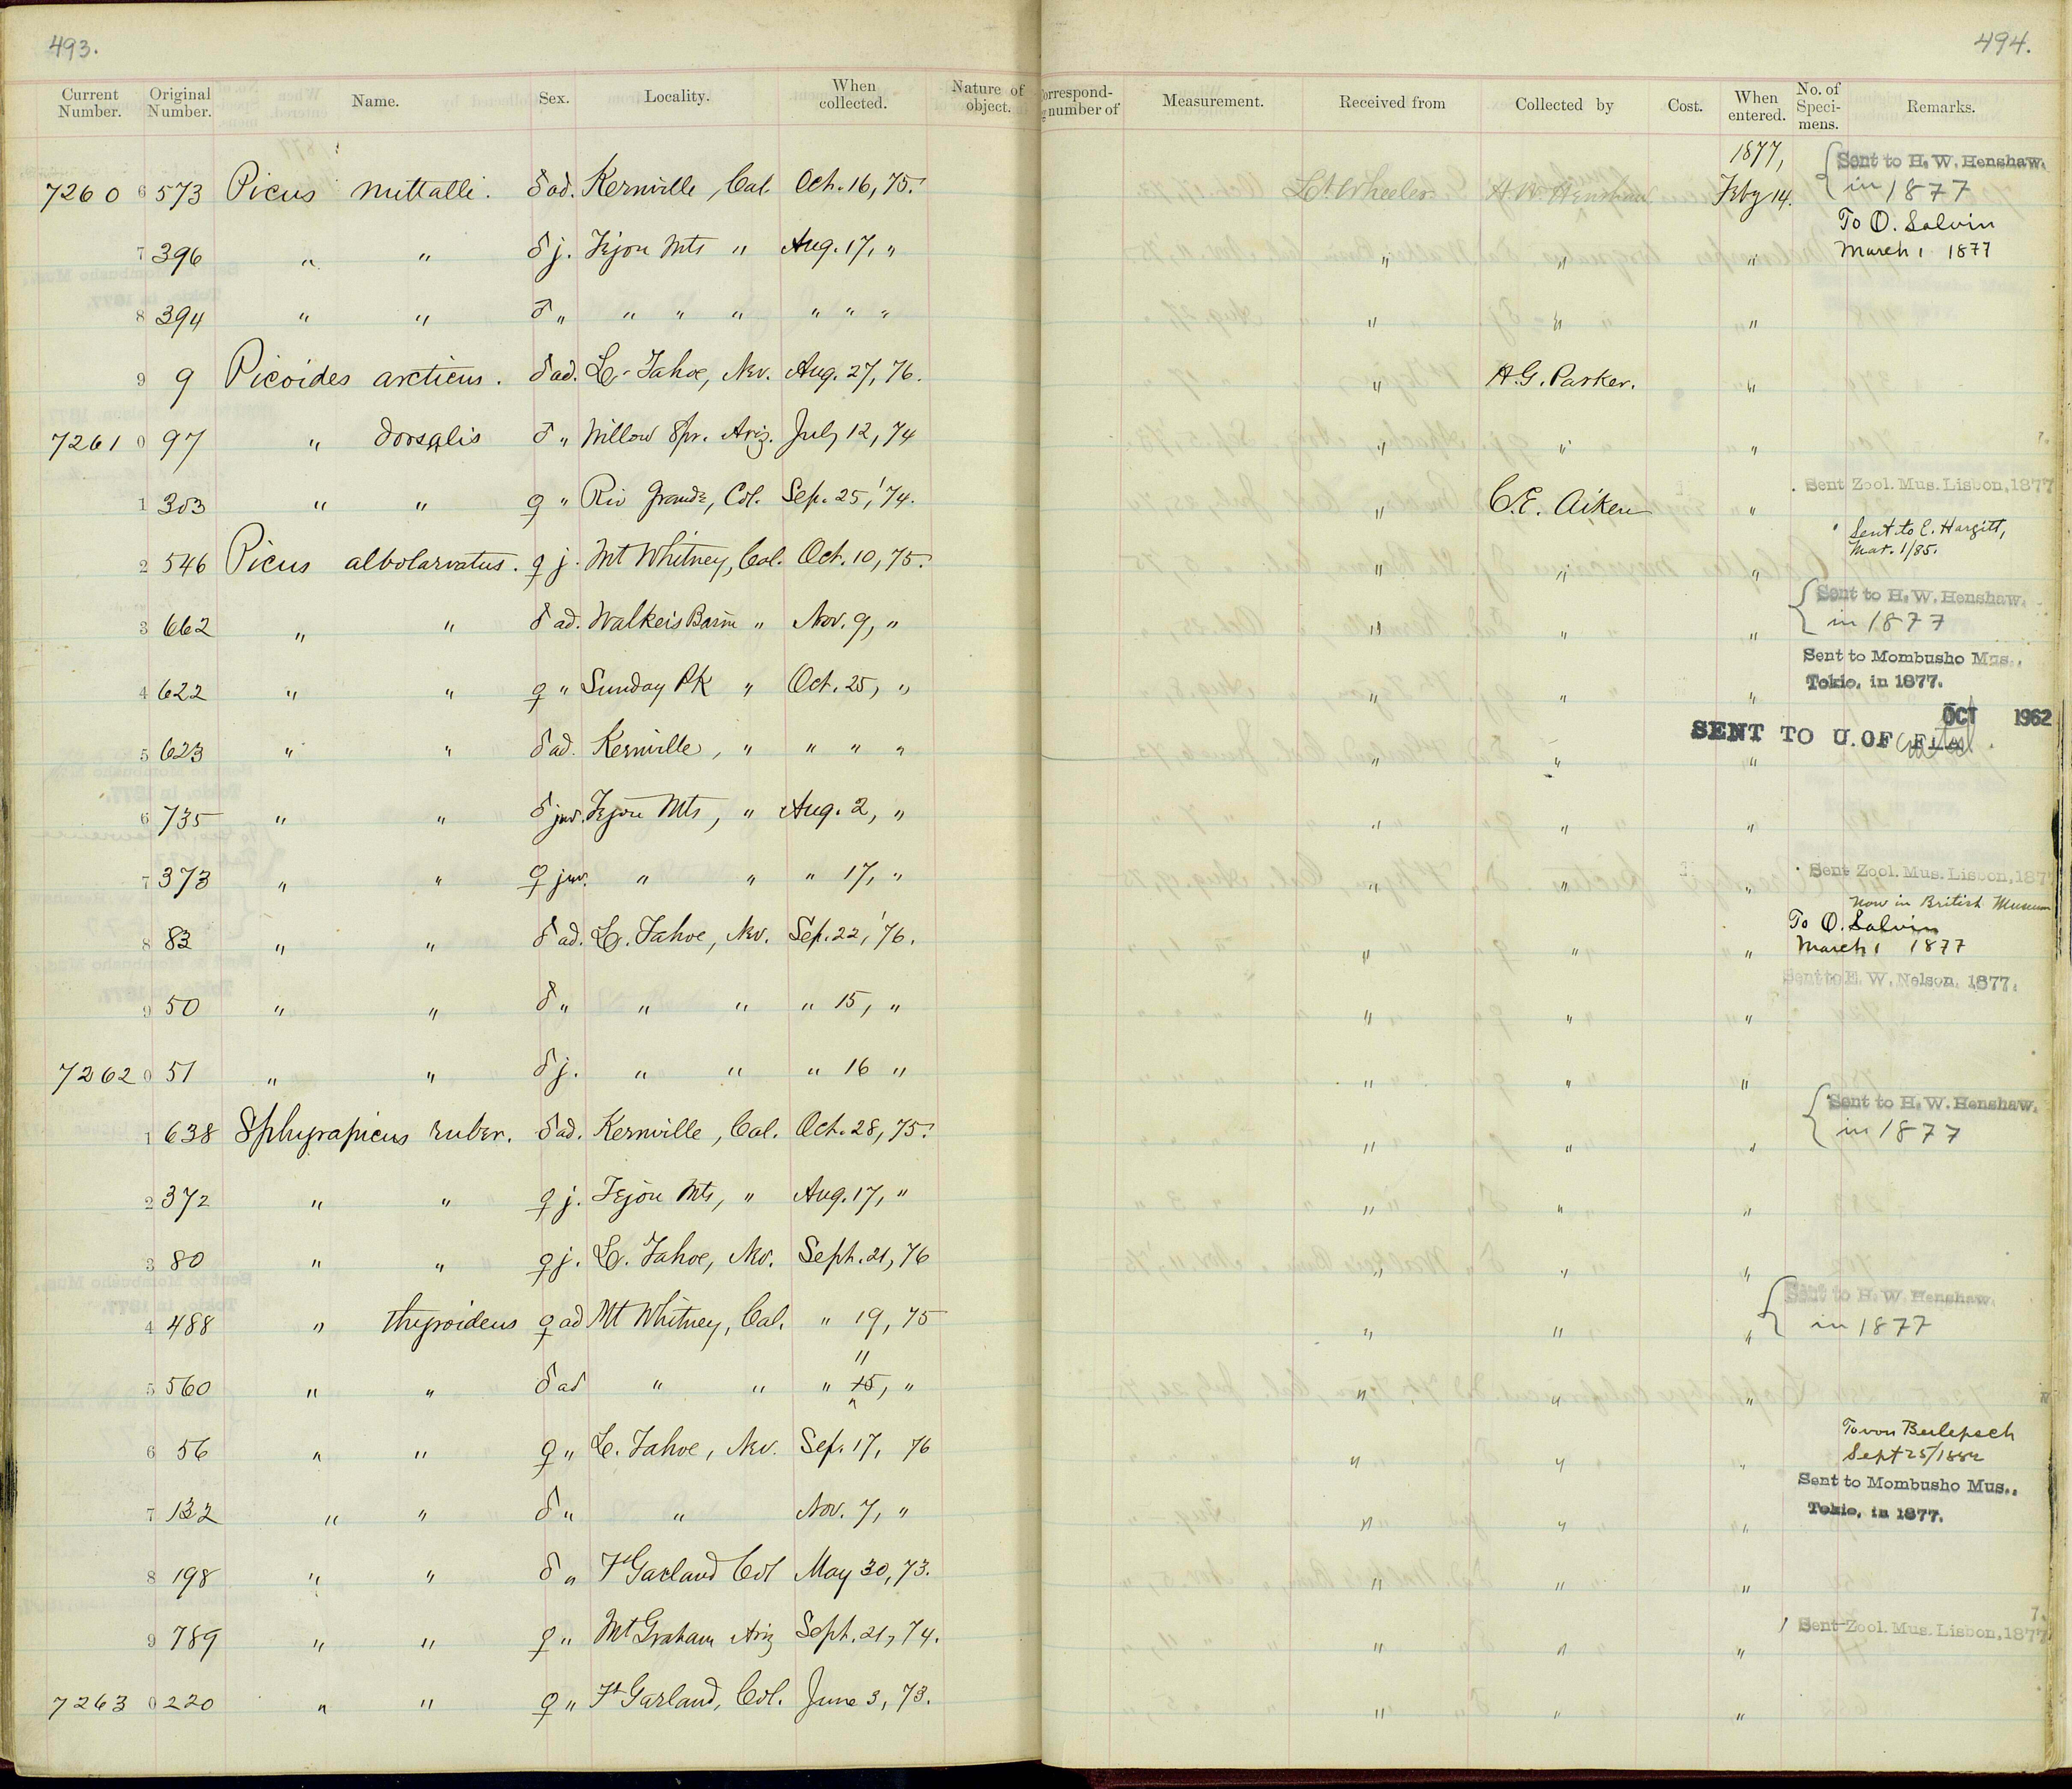 493.
494.
Current Number. Original Number. Name. Sex. Locality. When collected. Nature of object. Correspond-g number of Measurement. Received from Collected by Cost. When entered. No. of Speci-mens. Remarks.
7260 6 573 Picus nuttalli. ♂ ad. Kernville, Cal. Oct. 16, 75. Lt. Wheeler H. W. Henshaw 1877, Feby 14. { Sent to H. W. Henshaw. in 1877
7 396 " " ♂ j. Tejon Mts " Aug. 17, " " " " To O. Salvin March 1 1877
8 394 " " ♂ " " " " " " " " " "
9 9 Picoides arcticus. ♂ ad. L. Tahoe, Nev. Aug. 27, 76. " H. G. Parker. "
7261 0 97 " dorsalis ♂ " Willow Spr. Ariz. July 12, 74 " " "
1 303 " " ♀ " Rio Grande, Col. Sep. 25, '74. " C. E. Aiken " Sent Zool. Mus. Lisbon, 1877
2 546 Picus albolarvatus. ♀ j. Mt Whitney, Cal. Oct. 10, 75. " " " Sent to E. Hargitt, Mar. 1/85.
3 662 " " ♂ ad. Walkeis Basin " Nov. 9, " " " " { Sent to H. W. Henshaw. in 1877
4 622 " " ♀ " Sunday Pk " Oct. 25, " " " " Sent to Mombusho Mus., Tokio, in 1877.
5 623 " " ♂ ad. Kernville, " " " " " " " SENT TO U. OF FLA OCT 1962
6 735 " " ♂ juv. Tejon Mts, " Aug. 2, " " " "
7 373 " " ♀ juv. " " " 17, " " " " Sent Zool. Mus. Lisbon, 187
now in British Museum
8 83 " " ♂ ad. L. Tahoe, Nev. Sep. 22, '76. " " " To O. Salvin March 1 1877
9 50 " " ♂ " " " " 15, " " " " Sent to E. W. Nelson, 1877.
7262 0 51 " " ♂ j. " " " 16 " " " "
1 638 Sphyrapicus ruber. ♂ ad. Kernville, Cal. Oct. 28, 75. " " " { Sent to H. W. Henshaw. in 1877
2 372 " " ♀ j. Tejon Mts, " Aug. 17, " " " "
3 80 " " ♀ j. L. Tahoe, Nev. Sept. 21, 76 " " "
4 488 " thyroideus ♀ ad Mt Whitney, Cal. " 19, 75 " " " { Sent to H. W. Henshaw. in 1877
5 560 " " ♂ ad " " " 15, 11 " " " "
6 56 " " ♀ " L. Tahoe, Nev. Sep. 17, 76 " " " To von Berlepsch Sept 25/1882
7 132 " " ♂ " " Nov. 7, " " " " Sent to Mombusho Mus., Tokio, in 1877.
8 198 " " ♂ " Ft Garland Col May 30, 73. " " "
9 789 " " ♀ " Mt Graham Ariz Sept. 21, 74. " " " Sent Zool. Mus. Lisbon, 1877
7263 0 220 " " ♀ " Ft Garland, Col. June 3, 73. " " "